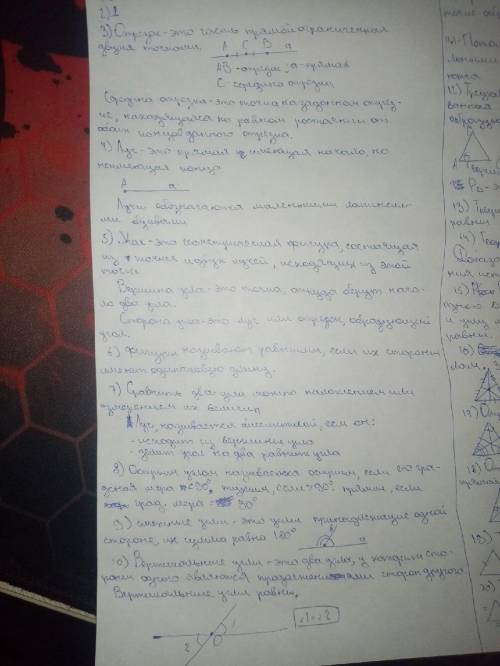 2) 1
3) Отрезок - это часть прямой ограниченная
двумя точками. A C B a
AB - отрезок, a - прямая
C - середина отрезка
Середина отрезка - это точка на заданном отрез-
ке, находящаяся на равном расстоянии от
обоих концов данного отрезка.
4) Луч - это прямая имеющая начало, но
не имеющая конца
A a
Лучи обозначаются маленькими латински-
ми буквами
5) Угол - это геометрическая фигура, состоящая
из точки и двух лучей, исходящих из этой
точки
Вершина угла - это точка, откуда берут нача-
ло два угла.
Сторона угла - это луч или отрезок, образующий
угол.
6) Фигуры называют равными, если их стороны
имеют одинаковую длину.
7) Сравнить два угла можно наложением или
измерением их величин
Луч, называется биссектрисой, если он:
- исходит из вершины угла
- делит угол на два равных угла
8) Острым углом называется острым, если его гра-
дусная мера < 90°, тупым, если > 90° прямым, если
град. мера = 90°
9) смежные углы - это углы принадлежащие одной
стороне, их сумма равна 180°
a
10) Вертикальные углы - это два угла, у которых сто-
роны одного являются продолжениями сторон другого
Вертикальные углы равны.
2 1
13) Треу
равны
14) Теор